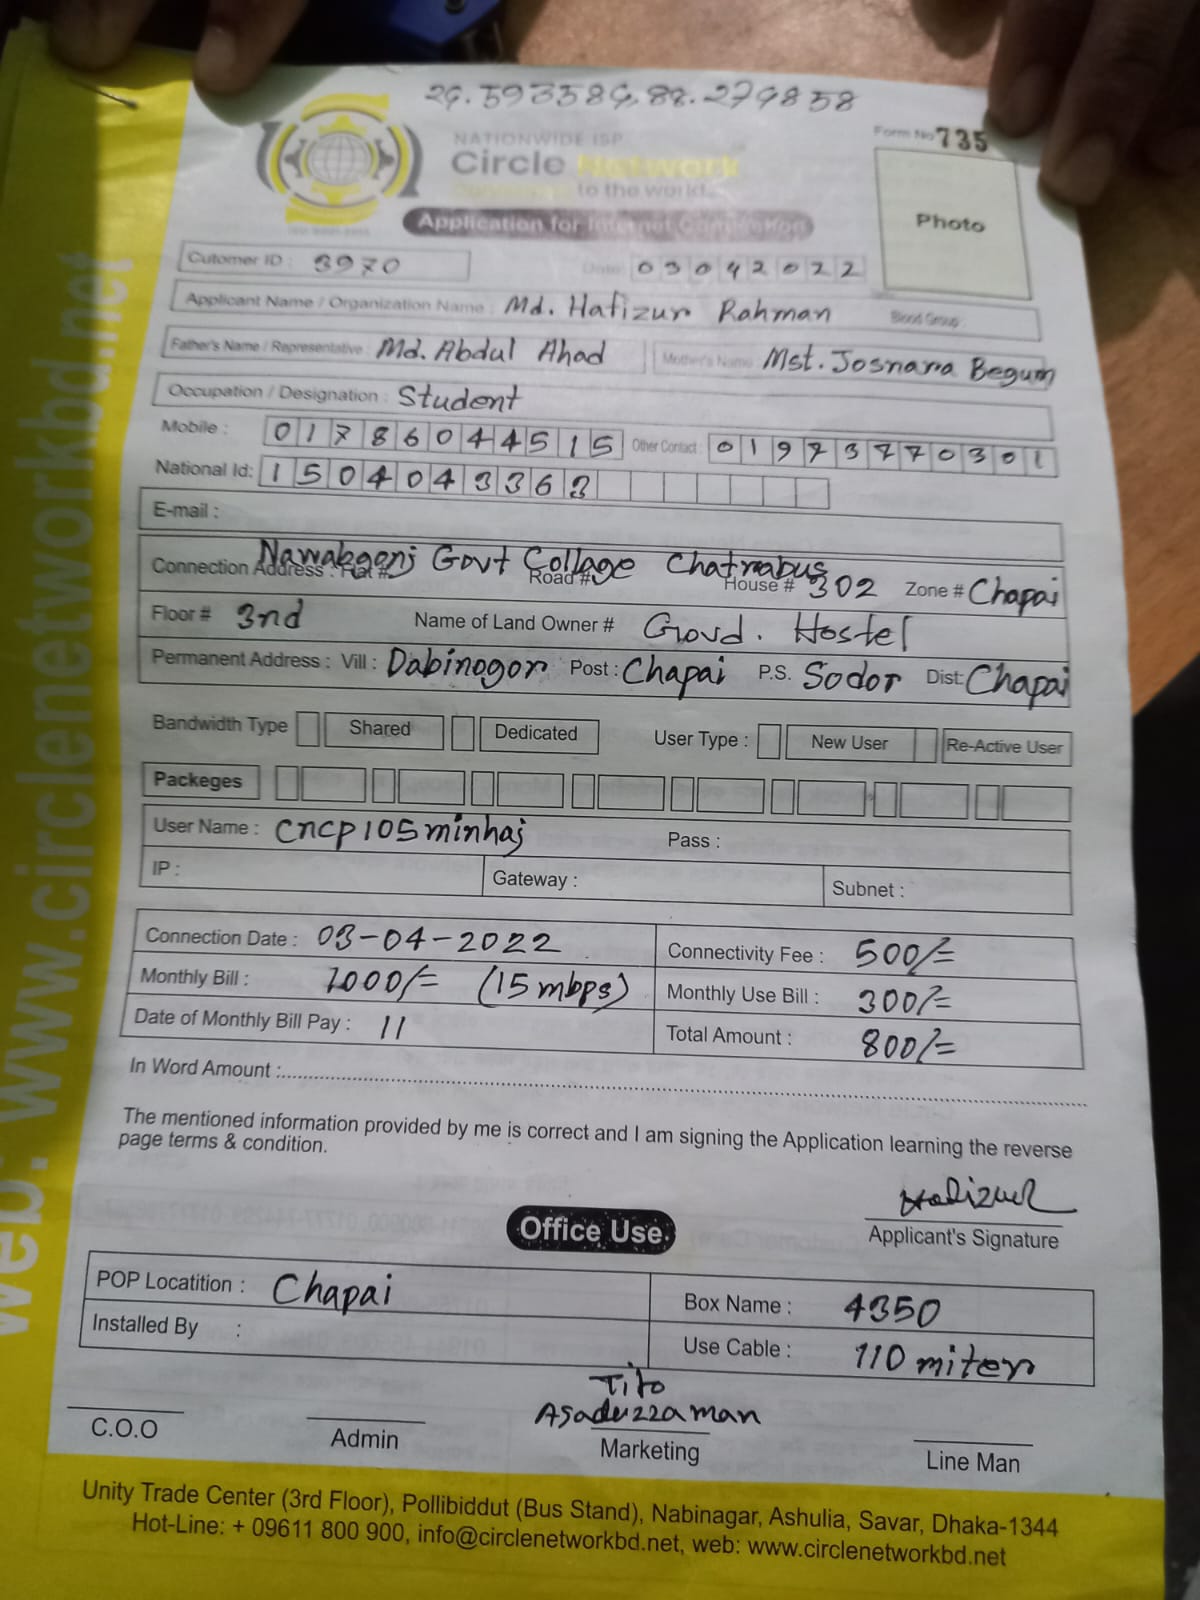 24.593584,88.274858
Form No 735
NATIONWIDE ISP
Circle Network
to the world.
Photo
Application for Internet Connection
Cutomer ID : 3970 Date: 03042022
Applicant Name / Organization Name : Md. Hafizur Rahman Blood Group :
Father's Name / Representative : Md. Abdul Ahad Mother's Name Mst. Josnara Begum
Occupation / Designation : Student
Mobile : 01786044515 Other Contact : 01973770301
National Id: 1504043363
E-mail :
Nawabgonj Govt Collage Chatrabus
Connection Address : Flat # Road # House # 302 Zone # Chapai
Floor # 3nd Name of Land Owner # Govd. Hostel
Permanent Address : Vill : Dabinogor Post : Chapai P.S. Sodor Dist: Chapai
Bandwidth Type Shared Dedicated User Type : New User Re-Active User
Packeges
User Name : cncp105minhaj Pass :
IP : Gateway : Subnet :
Connection Date : 03-04-2022 Connectivity Fee : 500/=
Monthly Bill : 1000/= (15 mbps) Monthly Use Bill : 300/=
Date of Monthly Bill Pay : 11 Total Amount : 800/=
In Word Amount :
The mentioned information provided by me is correct and I am signing the Application learning the reverse
page terms & condition.
Hafizur
Applicant's Signature
Office Use.
POP Locatition : Chapai Box Name : 4350
Installed By : Use Cable : 110 miter
Tito
Asaduzzaman
C.O.O Admin Marketing Line Man
Unity Trade Center (3rd Floor), Pollibiddut (Bus Stand), Nabinagar, Ashulia, Savar, Dhaka-1344
Hot-Line: + 09611 800 900, info@circlenetworkbd.net, web: www.circlenetworkbd.net
web: www.circlenetworkbd.net